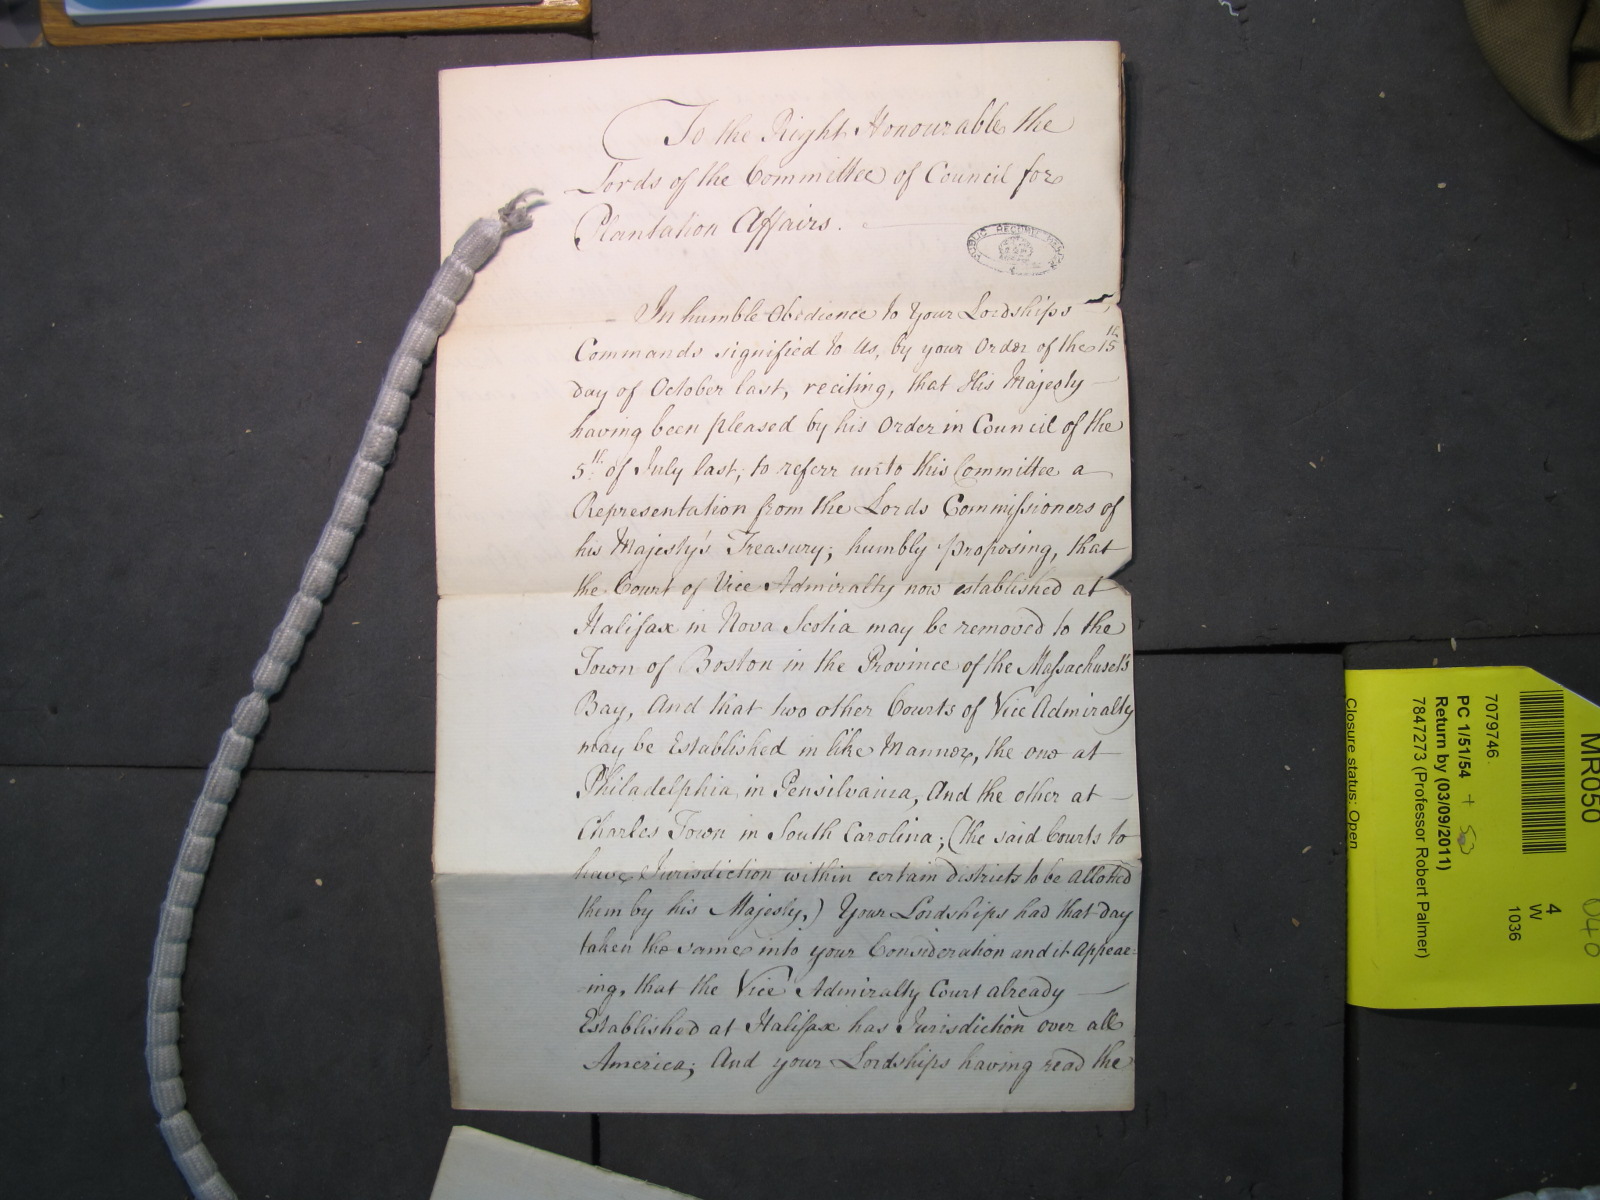 To the Right Honourable the
Lords of the Committee of Council for
Plantation Affairs.
PUBLIC RECORD OFFICE
In humble Obedience to Your Lordships
Commands signified to Us, by your Order of the 15th
day of October last, reciting, that His Majesty
having been pleased by his Order in Council of the
5th of July last, to referr unto this Committee a
Representation from the Lords Commissioners of
his Majesty's Treasury, humbly proposing, that
the Court of Vice Admiralty now established at
Halifax in Nova Scotia may be removed to the
Town of Boston in the Province of the Massachusets
Bay, And that two other Courts of Vice Admiralty
may be Established in like Manner, the one at
Philadelphia in Pensilvania, And the other at
Charles Town in South Carolina; (the said Courts to
have Jurisdiction within certain districts to be allotted
them by his Majesty,) Your Lordships had that day
taken the same into your Consideration and it appear-
ing, that the Vice Admiralty Court already
Established at Halifax has Jurisdiction over all
America; And your Lordships having read the
MR050
7079746
PC 1/51/54
Return by (03/09/2011)
7847273 (Professor Robert Palmer)
Closure status: Open
4
W
1036
040